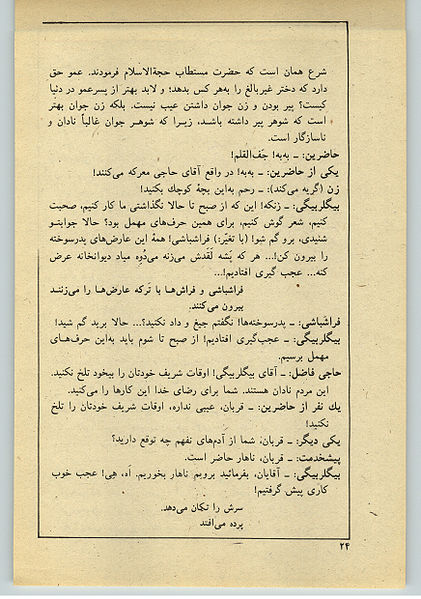 شرع همان است که حضرت مستطاب حجةالاسلام فرمودند. عمو حق
دارد که دختر غیربالغ را به‌هر کس بدهد؛ و لابد بهتر از پسرعمو در دنیا
کیست؟ پیر بودن و زن جوان داشتن عیب نیست. بلکه زن جوان بهتر
است که شوهر پیر داشته باشد، زیرا که شوهر جوان غالباً نادان و
ناسازگار است.
حاضرین: ـ به‌به! جَف‌القلم!
یکی از حاضرین: ـ به‌به! در واقع آقای حاجی معرکه می‌کنند!
زن (گریه می‌کند): ـ رحم به‌این بچۀ کوچك بکنید!
بیگلربیگی: ـ زنکه! این که از صبح تا حالا نگذاشتی ما کار کنیم، صحبت
کنیم، شعر گوش کنیم، برای همین حرف‌های مهمل بود؟ حالا جوابتو
شنیدی، برو گم شو! (با تغیّر:) فراشباشی! همۀ این عارض‌های پدرسوخته
را بیرون کن!... هر که پشه لَقَدش می‌زنه می‌دُوِه میاد دیوانخانه عرض
کنه... عجب گیری افتادیم!...
فراشباشی و فراش‌ها با تَرکه عارض‌ها را می‌زننـد
بیرون می‌کنند.
فراشباشی: ـ پدرسوخته‌ها! نگفتم جیغ و داد نکنید؟... حالا برید گم شید!
بیگلربیگی: ـ عجب‌گیری افتادیم! از صبح تا شوم باید به‌این حرف‌هـای
مهمل برسیم.
حاجی فاضل: ـ آقای بیگلربیگی! اوقات شریف خودتان را بیخود تلخ نکنید.
این مردم نادان هستند. شما برای رضای خدا این کارها را می‌کنید.
یك نفر از حاضرین: ـ قربان، عیبی نداره، اوقات شریف خودتان را تلخ
نکنید!
یکی دیگر: ـ قربان، شما از آدم‌های نفهم چه توقع دارید؟
پیشخدمت: ـ قربان، ناهار حاضر است.
بیگلربیگی: ـ آقایان، بفرمائید برویم ناهار بخوریم. اَه، هِی! عجب خوب
کاری پیش گرفتیم!
سرش را تکان می‌دهد.
پرده می‌افتد
۲۴